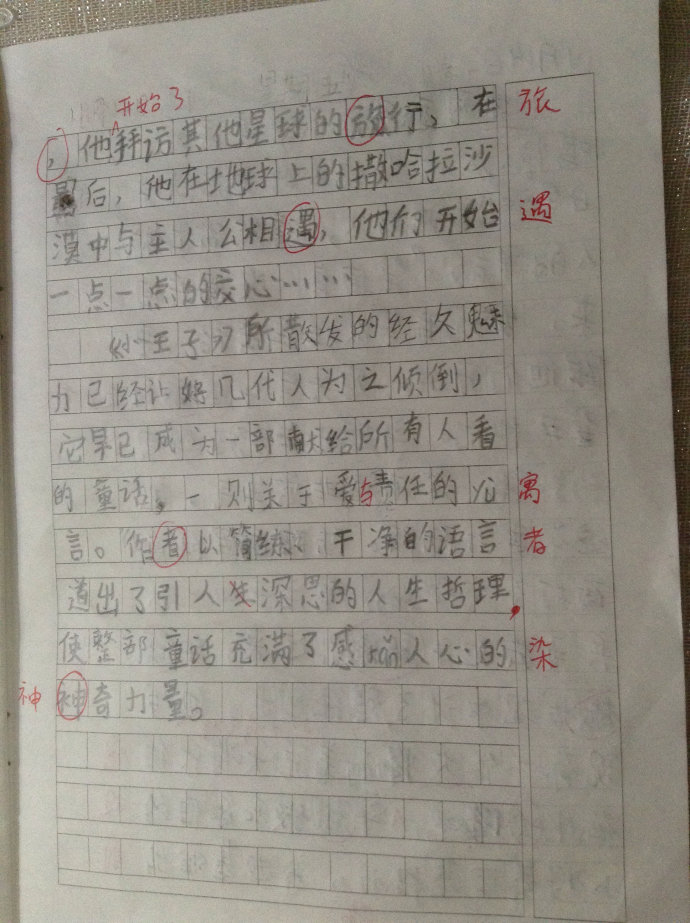 开始了
，他拜访其他星球的旅行，在 旅
最后，他在地球上的撒哈拉沙
漠中与主人公相遇，他们开始 遇
一点一点的交心……
《小王子》所散发的经久魅
力已经让好几代人为之倾倒，
它早已成为一部献给所有人看
的童话，一则关于爱与责任的yù 寓
言。作者以简练、干净的语言 者
道出了引人深思的人生哲理，
使整部童话充满了感rǎn人心的 染
神 神奇力量。